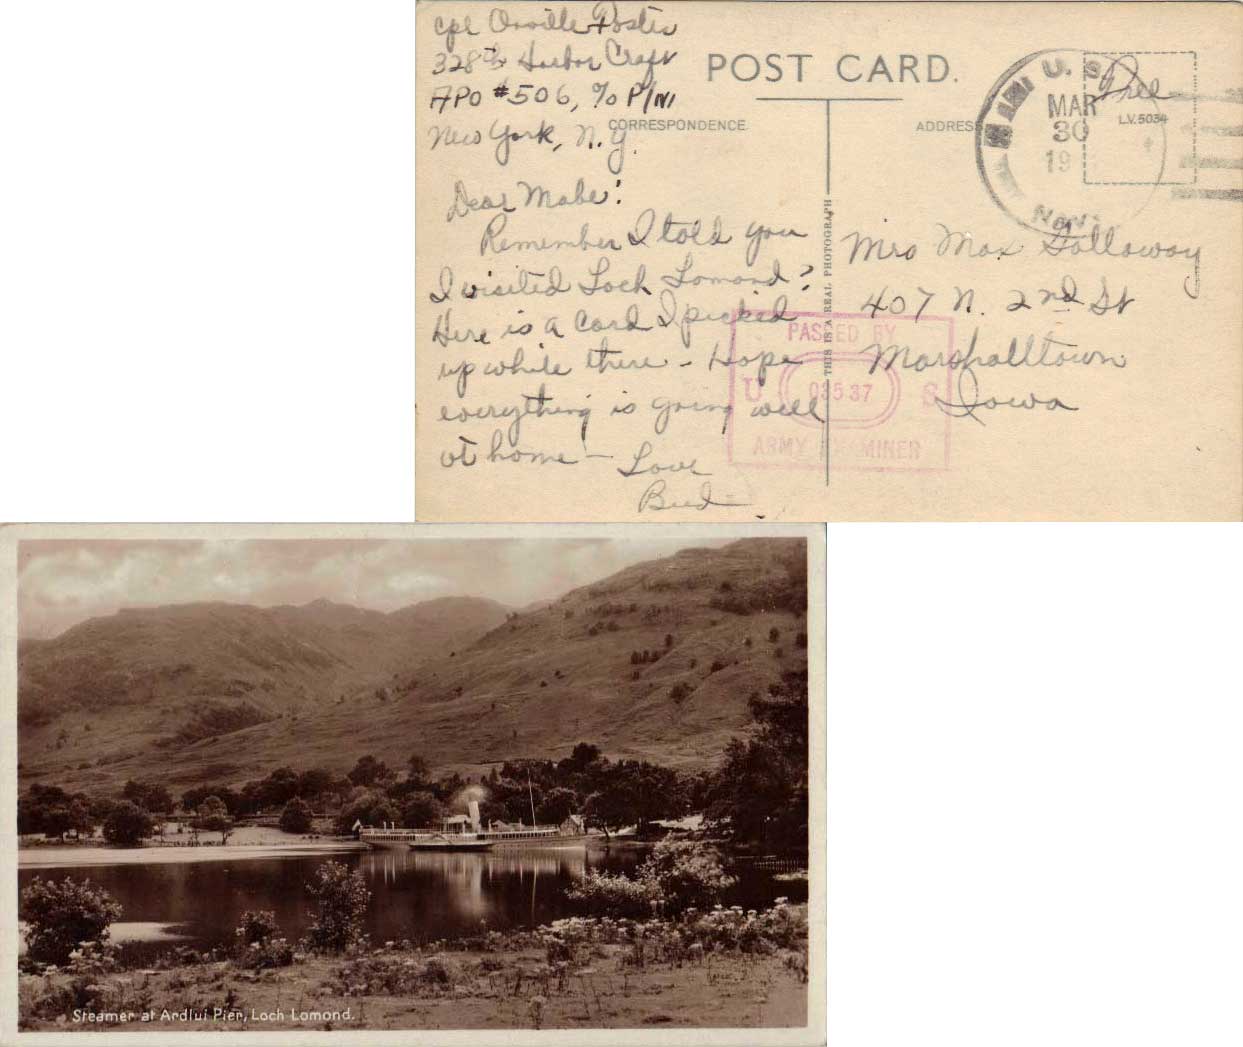 Cpl Orville Foster
328th Harbor Craft
APO #506, c/o P/M
New York, N.Y.
POST CARD.
CORRESPONDENCE.
ADDRESS
Free
L.V. 5034
U. S.
MAR
30
19
Dear Mabe!
Remember I told you
I visited Loch Lomond?
Here is a card I picked
up while there - Hope
everything is going well
at home - Love
Bud
THIS IS A REAL PHOTOGRAPH
Mrs Max Galloway
407 N. 2nd St
Marshalltown
Iowa
PASSED BY
U 03537 S
ARMY EXAMINER
Steamer at Ardlui Pier, Loch Lomond.